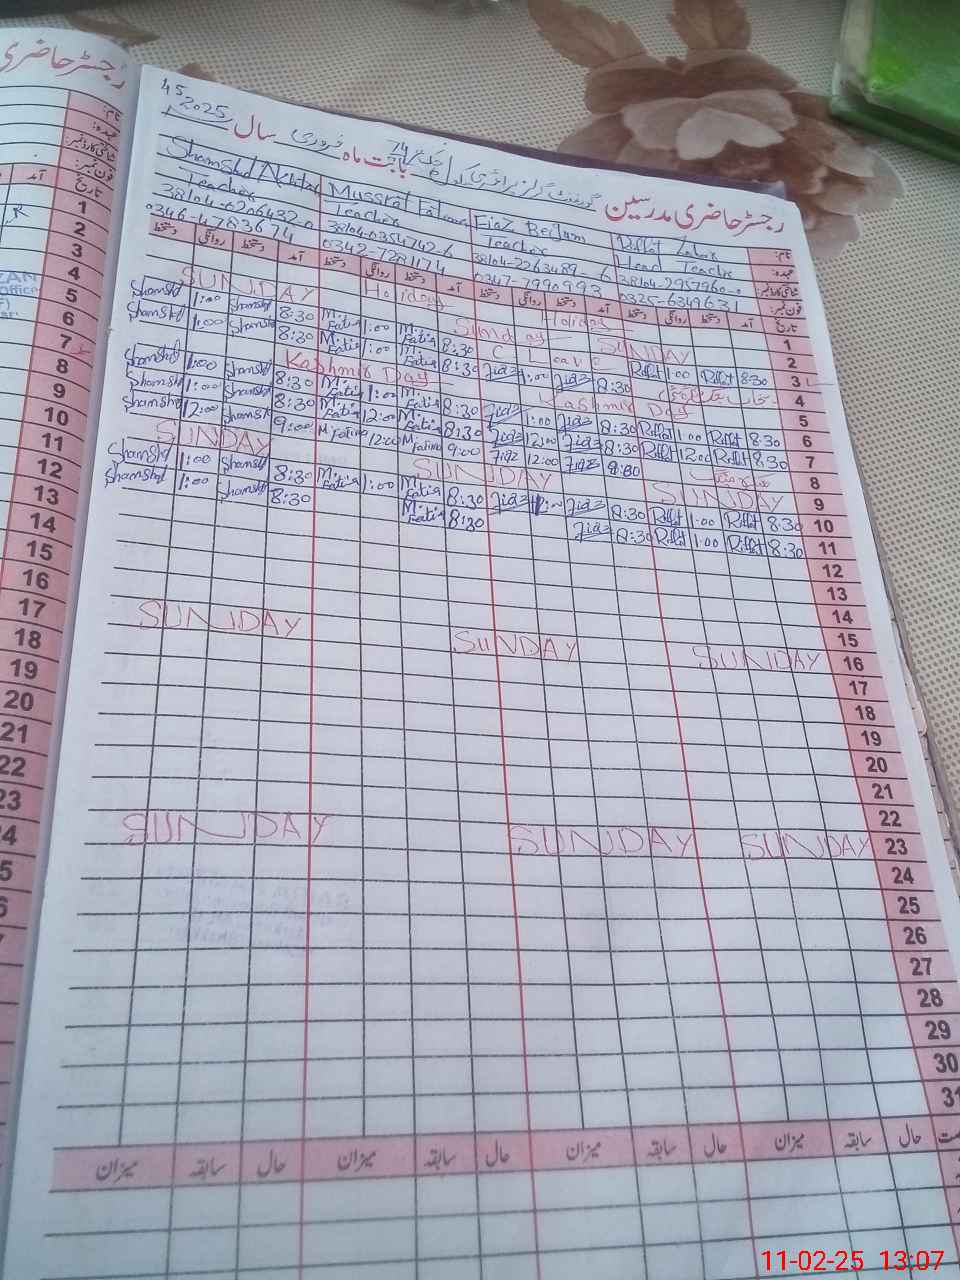 رجسٹر حاضری
رجسٹر حاضری مدرسین گورنمنٹ گرلز پرائمری بابت ماہ فروری سال 2025
نام: Zafar Fiaz Begum Mussrat Shamshd Akhtar
عہدہ: Head Teacher Teacher Teacher Teacher
شناختی کارڈ نمبر: 38104-2957960-0 38104-2263489-6 38104-0354742-6 38104-6206432-0
فون نمبر: 0325-6349631 0347-7990993 0342-7281174 0346-4783674
تاریخ آمد دستخط روانگی دستخط آمد دستخط روانگی دستخط آمد دستخط روانگی دستخط آمد دستخط روانگی دستخط
1
2 SUNDAY Sunday Holiday Holiday SUNDAY
3 8:30 Riffat 1:00 Riffat C Leave 8:30 M. Fatia 1:00 M. Fatia 8:30 Shamshd 1:00 Shamshd
4 8:30 Fiaz 1:00 Fiaz 8:30 M. Fatia 1:00 M. Fatia 8:30 Shamshd 1:00 Shamshd
5 Kashmir Day Kashmir Day
6 8:30 Riffat 1:00 Riffat 8:30 Fiaz 1:00 Fiaz 8:30 M. Fatia 1:00 M. Fatia 8:30 Shamshd 1:00 Shamshd
7 8:30 Riffat 12:00 Riffat 8:30 Fiaz 12:00 Fiaz 8:30 M. Fatia 12:00 M. Fatia 8:30 Shamshd 1:00 Shamshd
8 Fiaz 12:00 Fiaz 9:00 M. Fatima 12:00 M. Fatima 9:00 Shamshd 12:00 Shamshd
9 SUNDAY SUNDAY SUNDAY
10 8:30 Riffat 1:00 Riffat 8:30 Fiaz Fiaz 8:30 M. Fatia 1:00 M. Fatia 8:30 Shamshd 1:00 Shamshd
11 8:30 Riffat 1:00 Riffat 8:30 Fiaz 8:30 M. Fatia 8:30 Shamshd 1:00 Shamshd
12
13
14
15
16 SUNDAY SUNDAY SUNDAY
17
18
19
20
21
22
23 SUNDAY SUNDAY SUNDAY
24
25
26
27
28
29
30
31
حال سابقہ میزان حال سابقہ میزان حال سابقہ میزان حال سابقہ میزان
11-02-25 13:07